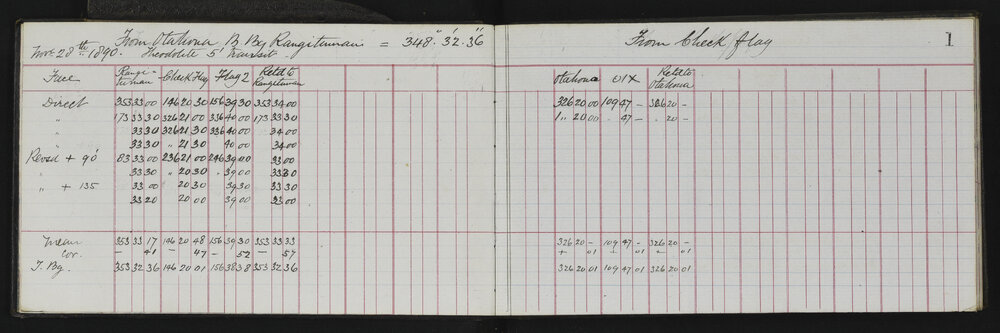 From Otahoua, B. Bg Rangitumau = 348° 32' 36"
Nov. 28th 1890. Theodolite 5" Transit
Face Rangi-tumau Check Flag Flag 2 Retd to Rangitumau
Direct 353 33 00 146 20 30 156 39 30 353 34 00
" 173 33 30 326 21 00 336 40 00 173 33 30
33 30 326 21 30 336 40 00 34 00
33 30 " 21 30 40 00 34 00
Revsd + 90 83 33 00 236 21 00 246 39 00 33 00
33 30 " 20 30 39 00 33 30
" + 135 33 00 20 30 39 30 33 30
33 20 20 00 39 00 33 00
Mean 353 33 17 146 20 48 156 39 30 353 33 33
Cor. – 41 – 47 – 52 – 57
T. Bg. 353 32 36 146 20 01 156 38 38 353 32 36
From Check flag 1
Otahoua OIX Retd to Otahoua
326 20 00 109 47 – 326 20 –
1 " 20 00 . 47 – . 20 –
326 20 – 109 47 – 326 20 –
+ 01 + 01 + 01
326 20 01 109 47 01 326 20 01